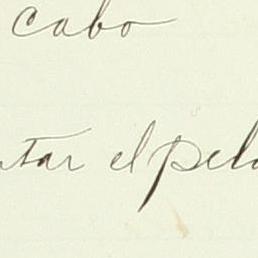 cabo
ntar el pelo